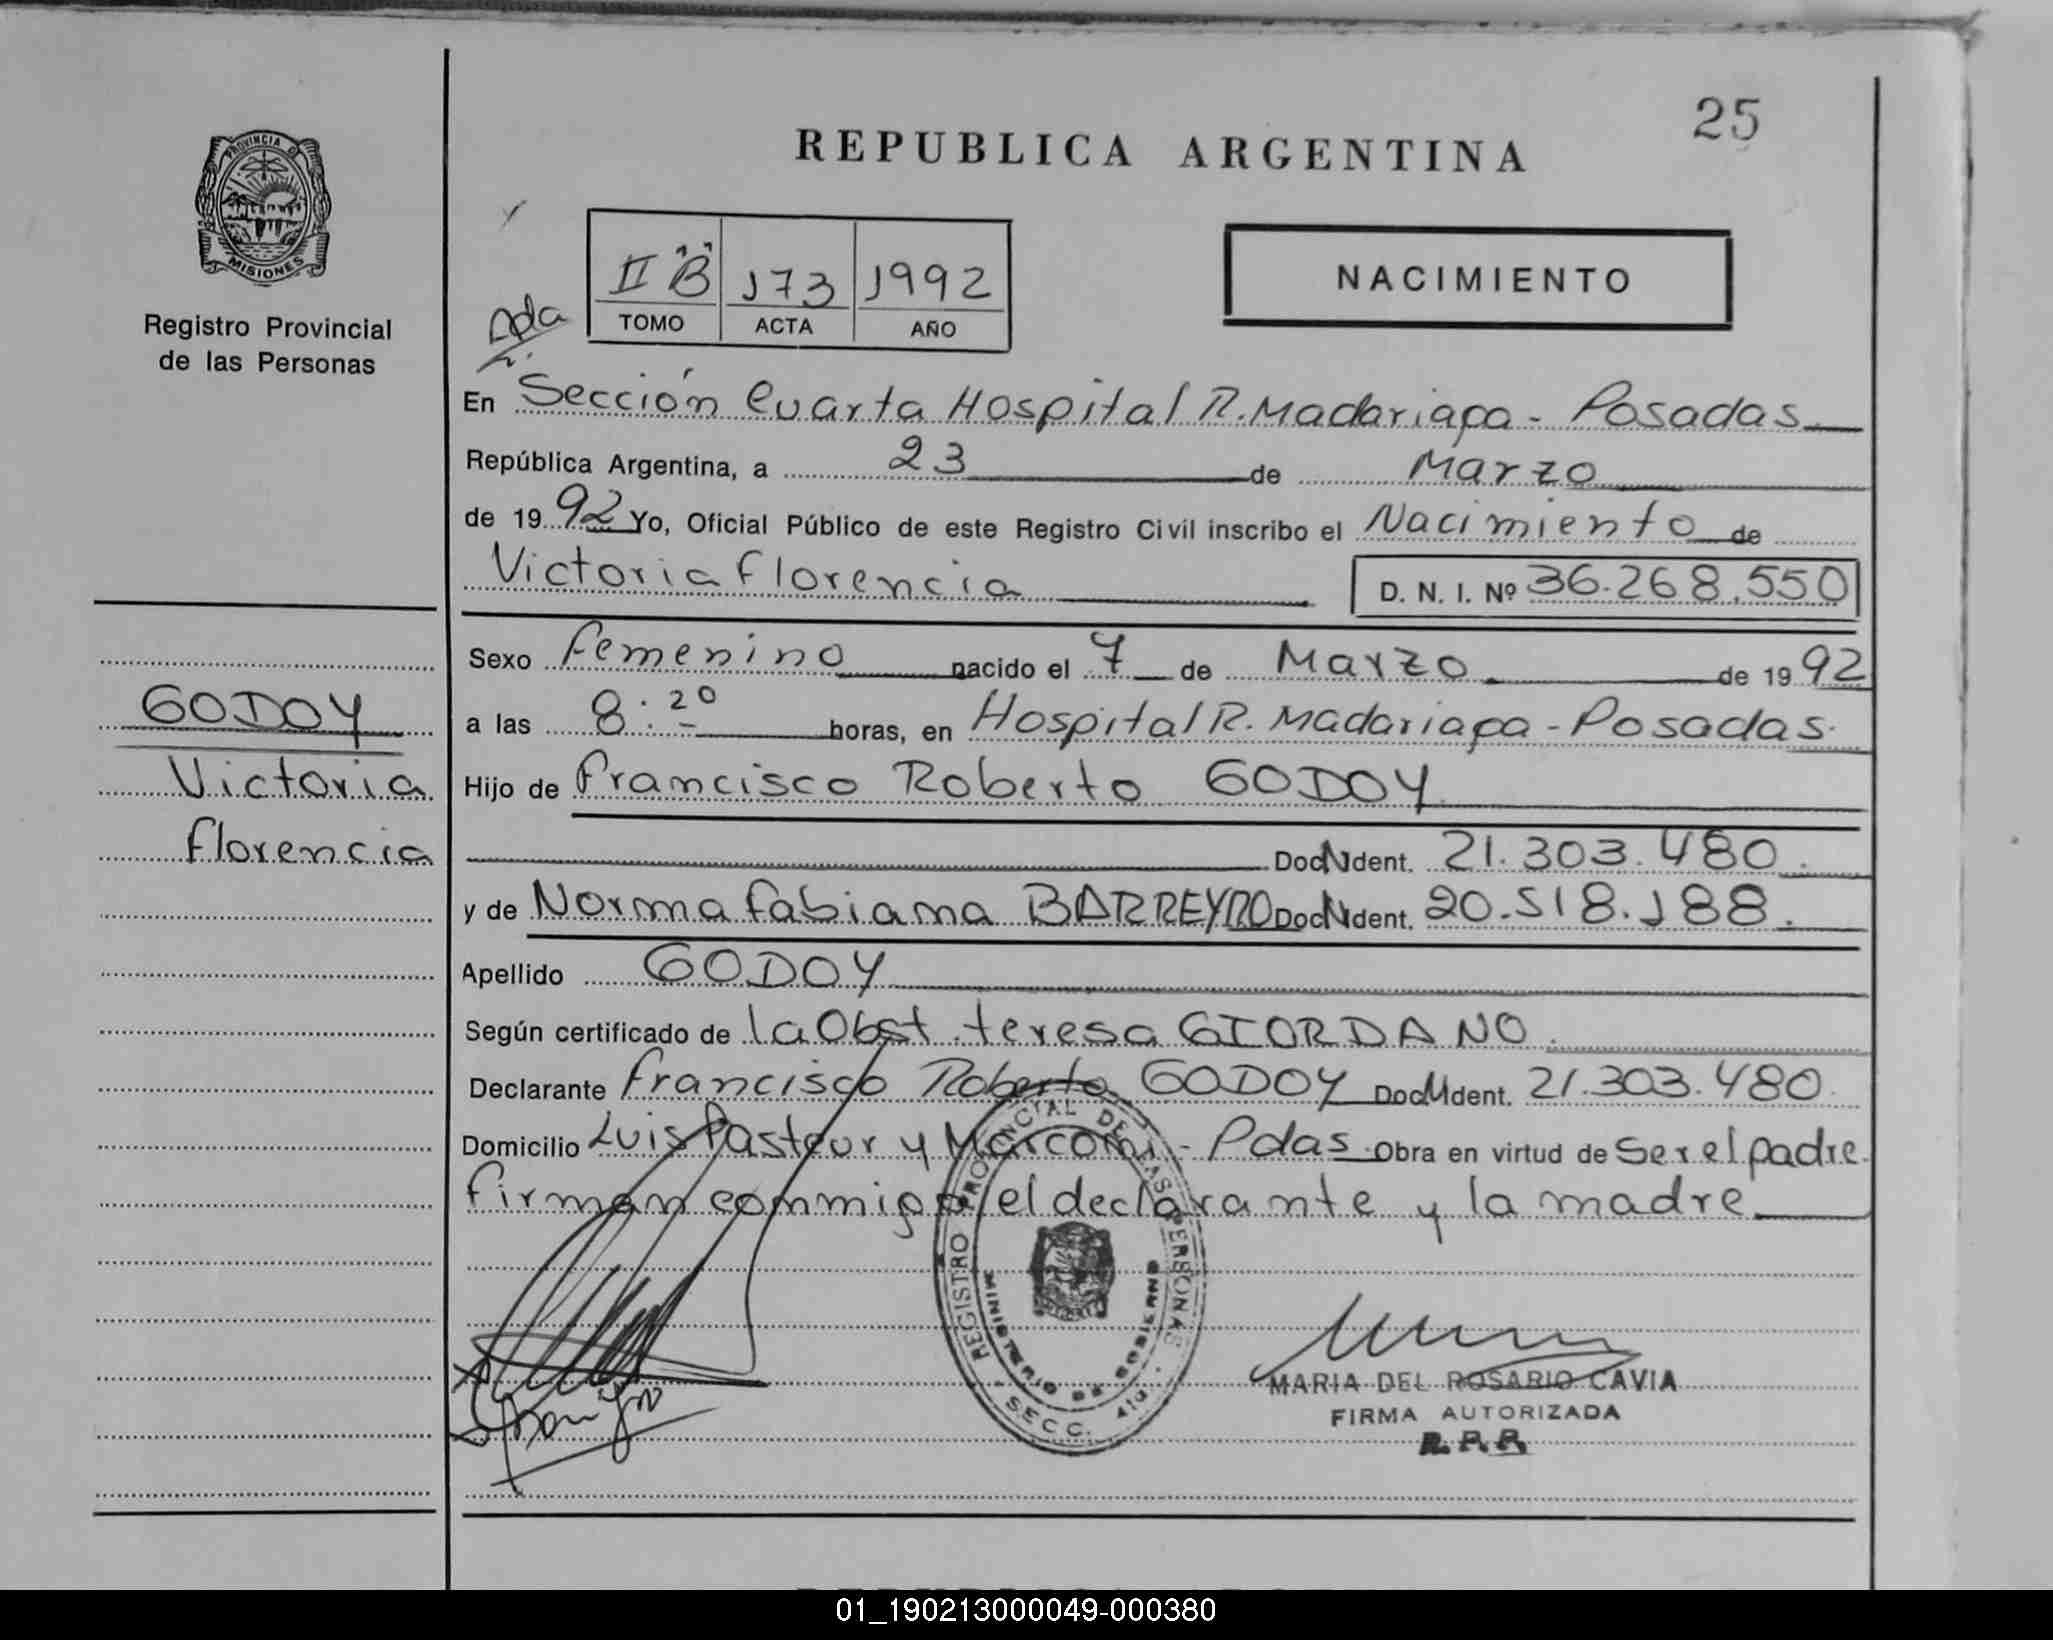 25
REPUBLICA ARGENTINA
PROVINCIA D
MISIONES
Registro Provincial
de las Personas
II "B" 173 1992
TOMO ACTA AÑO
NACIMIENTO
En Sección Cuarta Hospital R. Madariaga - Posadas
República Argentina, a 23 de Marzo
de 1992 Yo, Oficial Público de este Registro Civil inscribo el Nacimiento de
Victoria Florencia D. N. I. Nº 36.268.550
Sexo Femenino nacido el 7 de Marzo de 1992
a las 8:20 horas, en Hospital R. Madariaga - Posadas.
GODOY
Victoria
Florencia
Hijo de Francisco Roberto GODOY
Doc N Ident. 21.303.480.
y de Norma Fabiana BARREYRO Doc N Ident. 20.518.188.
Apellido GODOY
Según certificado de la Obst. teresa GIORDANO.
Declarante Francisco Roberto GODOY Doc M Ident. 21.303.480.
Domicilio Luis Pasteur y Marconi - Pdas. Obra en virtud de Ser el padre.
firman conmigo el declarante y la madre
REGISTRO PROVINCIAL DE LAS PERSONAS
MINISTERIO DE GOBIERNO
SECC. 4ta.
MARIA DEL ROSARIO CAVIA
FIRMA AUTORIZADA
R. P. P.
01_190213000049-000380